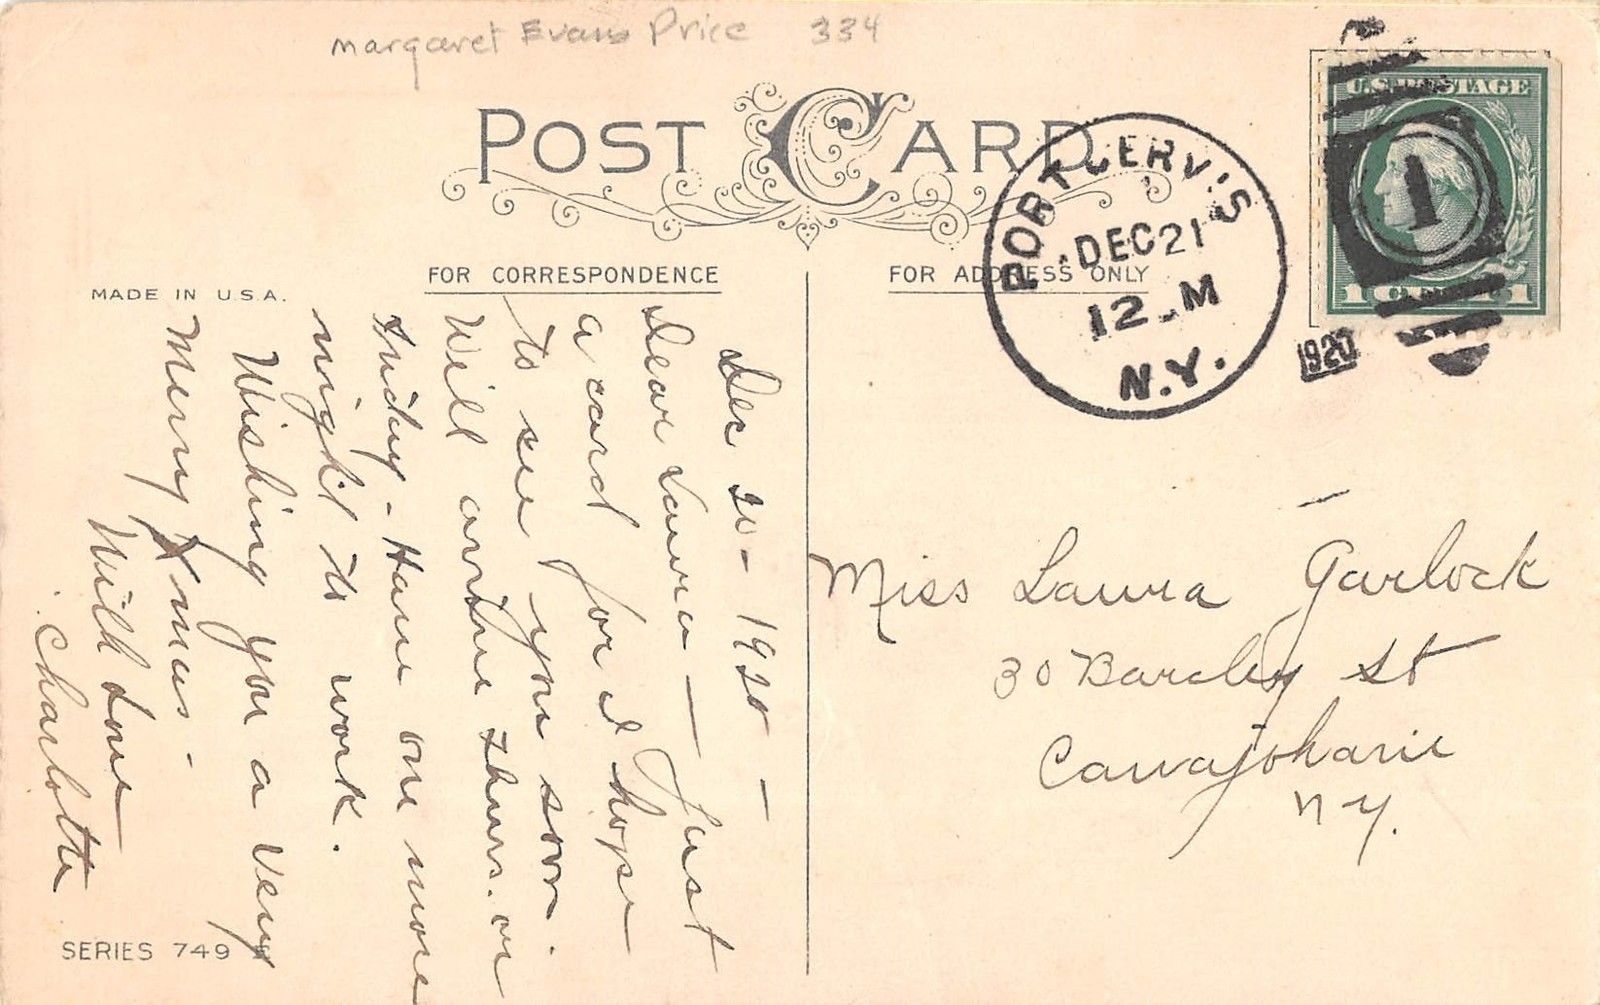 Margaret Evans Price 334
POST CARD
FOR CORRESPONDENCE
FOR ADDRESS ONLY
MADE IN U.S.A.
PORT JERVIS
DEC 21
12 M
N.Y.
1920
U.S. POSTAGE
1
1 CENT 1
Dec 20 - 1920 -
Dear Laura - Just
a card for I hope
to see you soon.
Will arrive Thurs. or
Friday - Have one more
night to work.
Wishing you a Very
Merry Xmas -
With Love
Charlotte
Miss Laura Garlock
30 Barclay St
Canajoharie
N Y.
SERIES 749